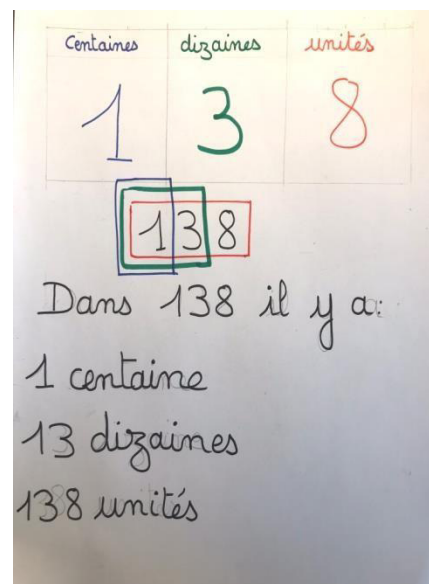 Centaines dizaines unités
1 3 8
138
Dans 138 il y a:
1 centaine
13 dizaines
138 unités